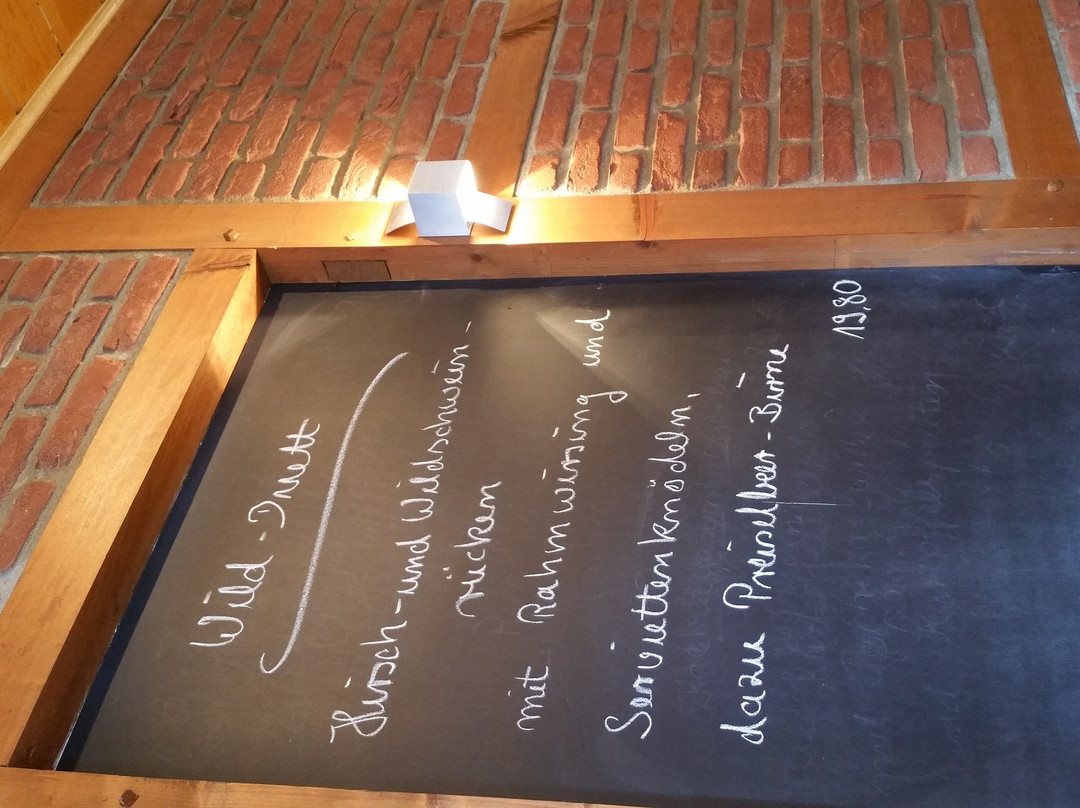 Wild-Duett
Hirsch-und Wildschwein-
rücken
mit Rahmwirsing und
Serviettenknödeln,
dazu Preiselbeer-Birne
19,80